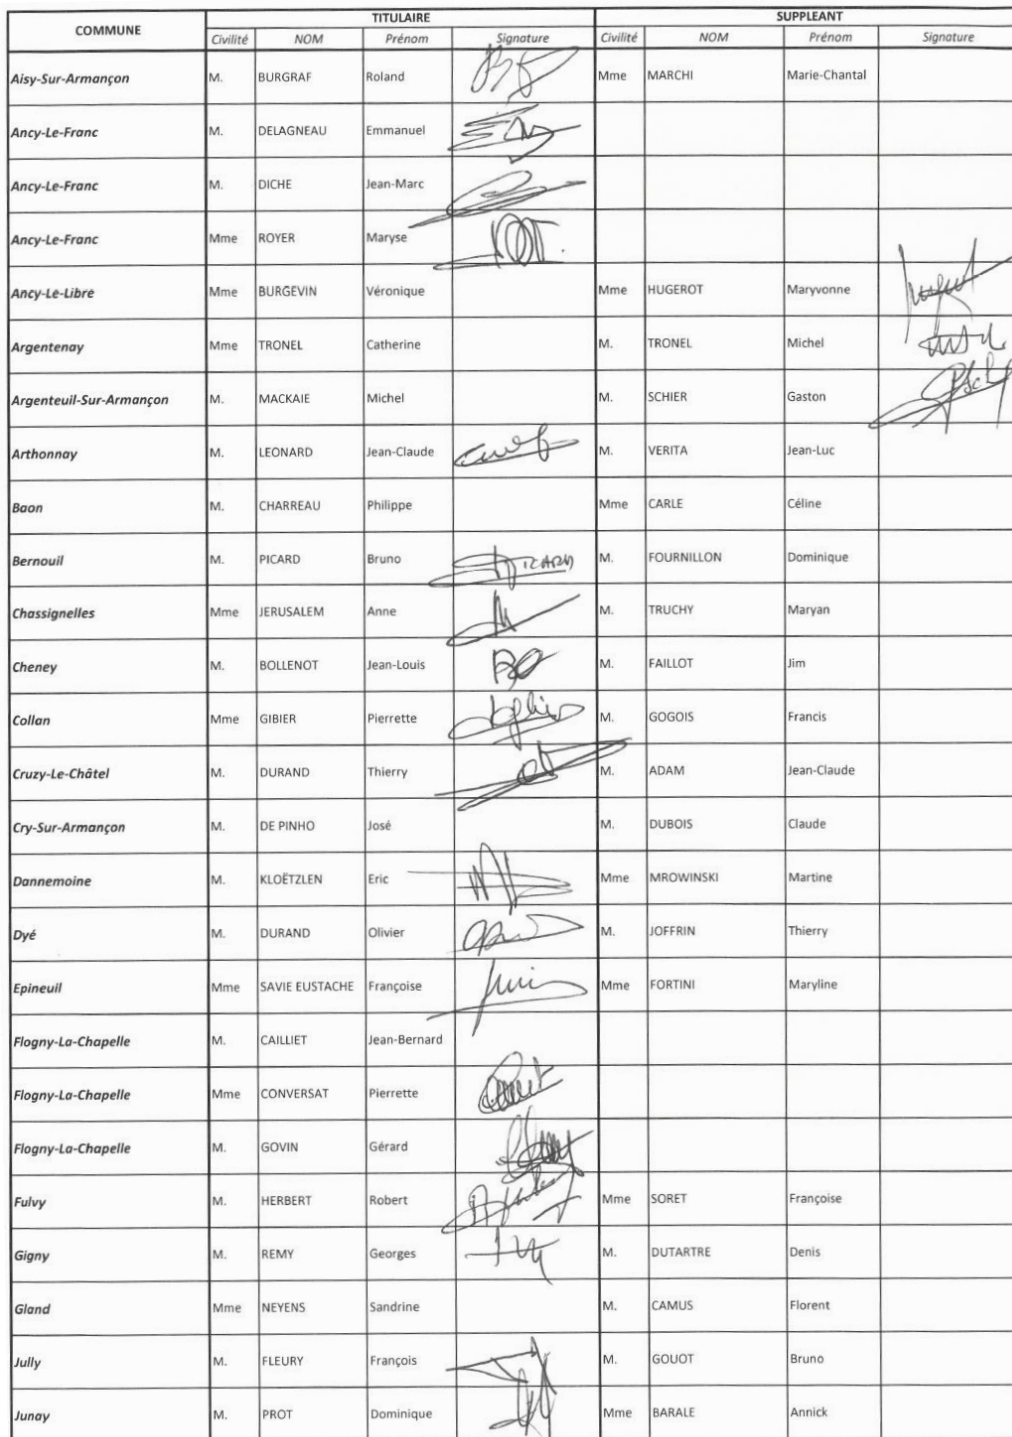 COMMUNE TITULAIRE SUPPLEANT
Civilité NOM Prénom Signature Civilité NOM Prénom Signature
Aisy-Sur-Armançon M. BURGRAF Roland Mme MARCHI Marie-Chantal
Ancy-Le-Franc M. DELAGNEAU Emmanuel
Ancy-Le-Franc M. DICHE Jean-Marc
Ancy-Le-Franc Mme ROYER Maryse
Ancy-Le-Libre Mme BURGEVIN Véronique Mme HUGEROT Maryvonne
Argentenay Mme TRONEL Catherine M. TRONEL Michel
Argenteuil-Sur-Armançon M. MACKAIE Michel M. SCHIER Gaston
Arthonnay M. LEONARD Jean-Claude M. VERITA Jean-Luc
Baon M. CHARREAU Philippe Mme CARLE Céline
Bernouil M. PICARD Bruno PICARD M. FOURNILLON Dominique
Chassignelles Mme JERUSALEM Anne M. TRUCHY Maryan
Cheney M. BOLLENOT Jean-Louis M. FAILLOT Jim
Collan Mme GIBIER Pierrette M. GOGOIS Francis
Cruzy-Le-Châtel M. DURAND Thierry M. ADAM Jean-Claude
Cry-Sur-Armançon M. DE PINHO José M. DUBOIS Claude
Dannemoine M. KLOËTZLEN Eric Mme MROWINSKI Martine
Dyé M. DURAND Olivier M. JOFFRIN Thierry
Epineuil Mme SAVIE EUSTACHE Françoise Mme FORTINI Maryline
Flogny-La-Chapelle M. CAILLIET Jean-Bernard
Flogny-La-Chapelle Mme CONVERSAT Pierrette
Flogny-La-Chapelle M. GOVIN Gérard
Fulvy M. HERBERT Robert Mme SORET Françoise
Gigny M. REMY Georges M. DUTARTRE Denis
Gland Mme NEYENS Sandrine M. CAMUS Florent
Jully M. FLEURY François M. GOUOT Bruno
Junay M. PROT Dominique Mme BARALE Annick